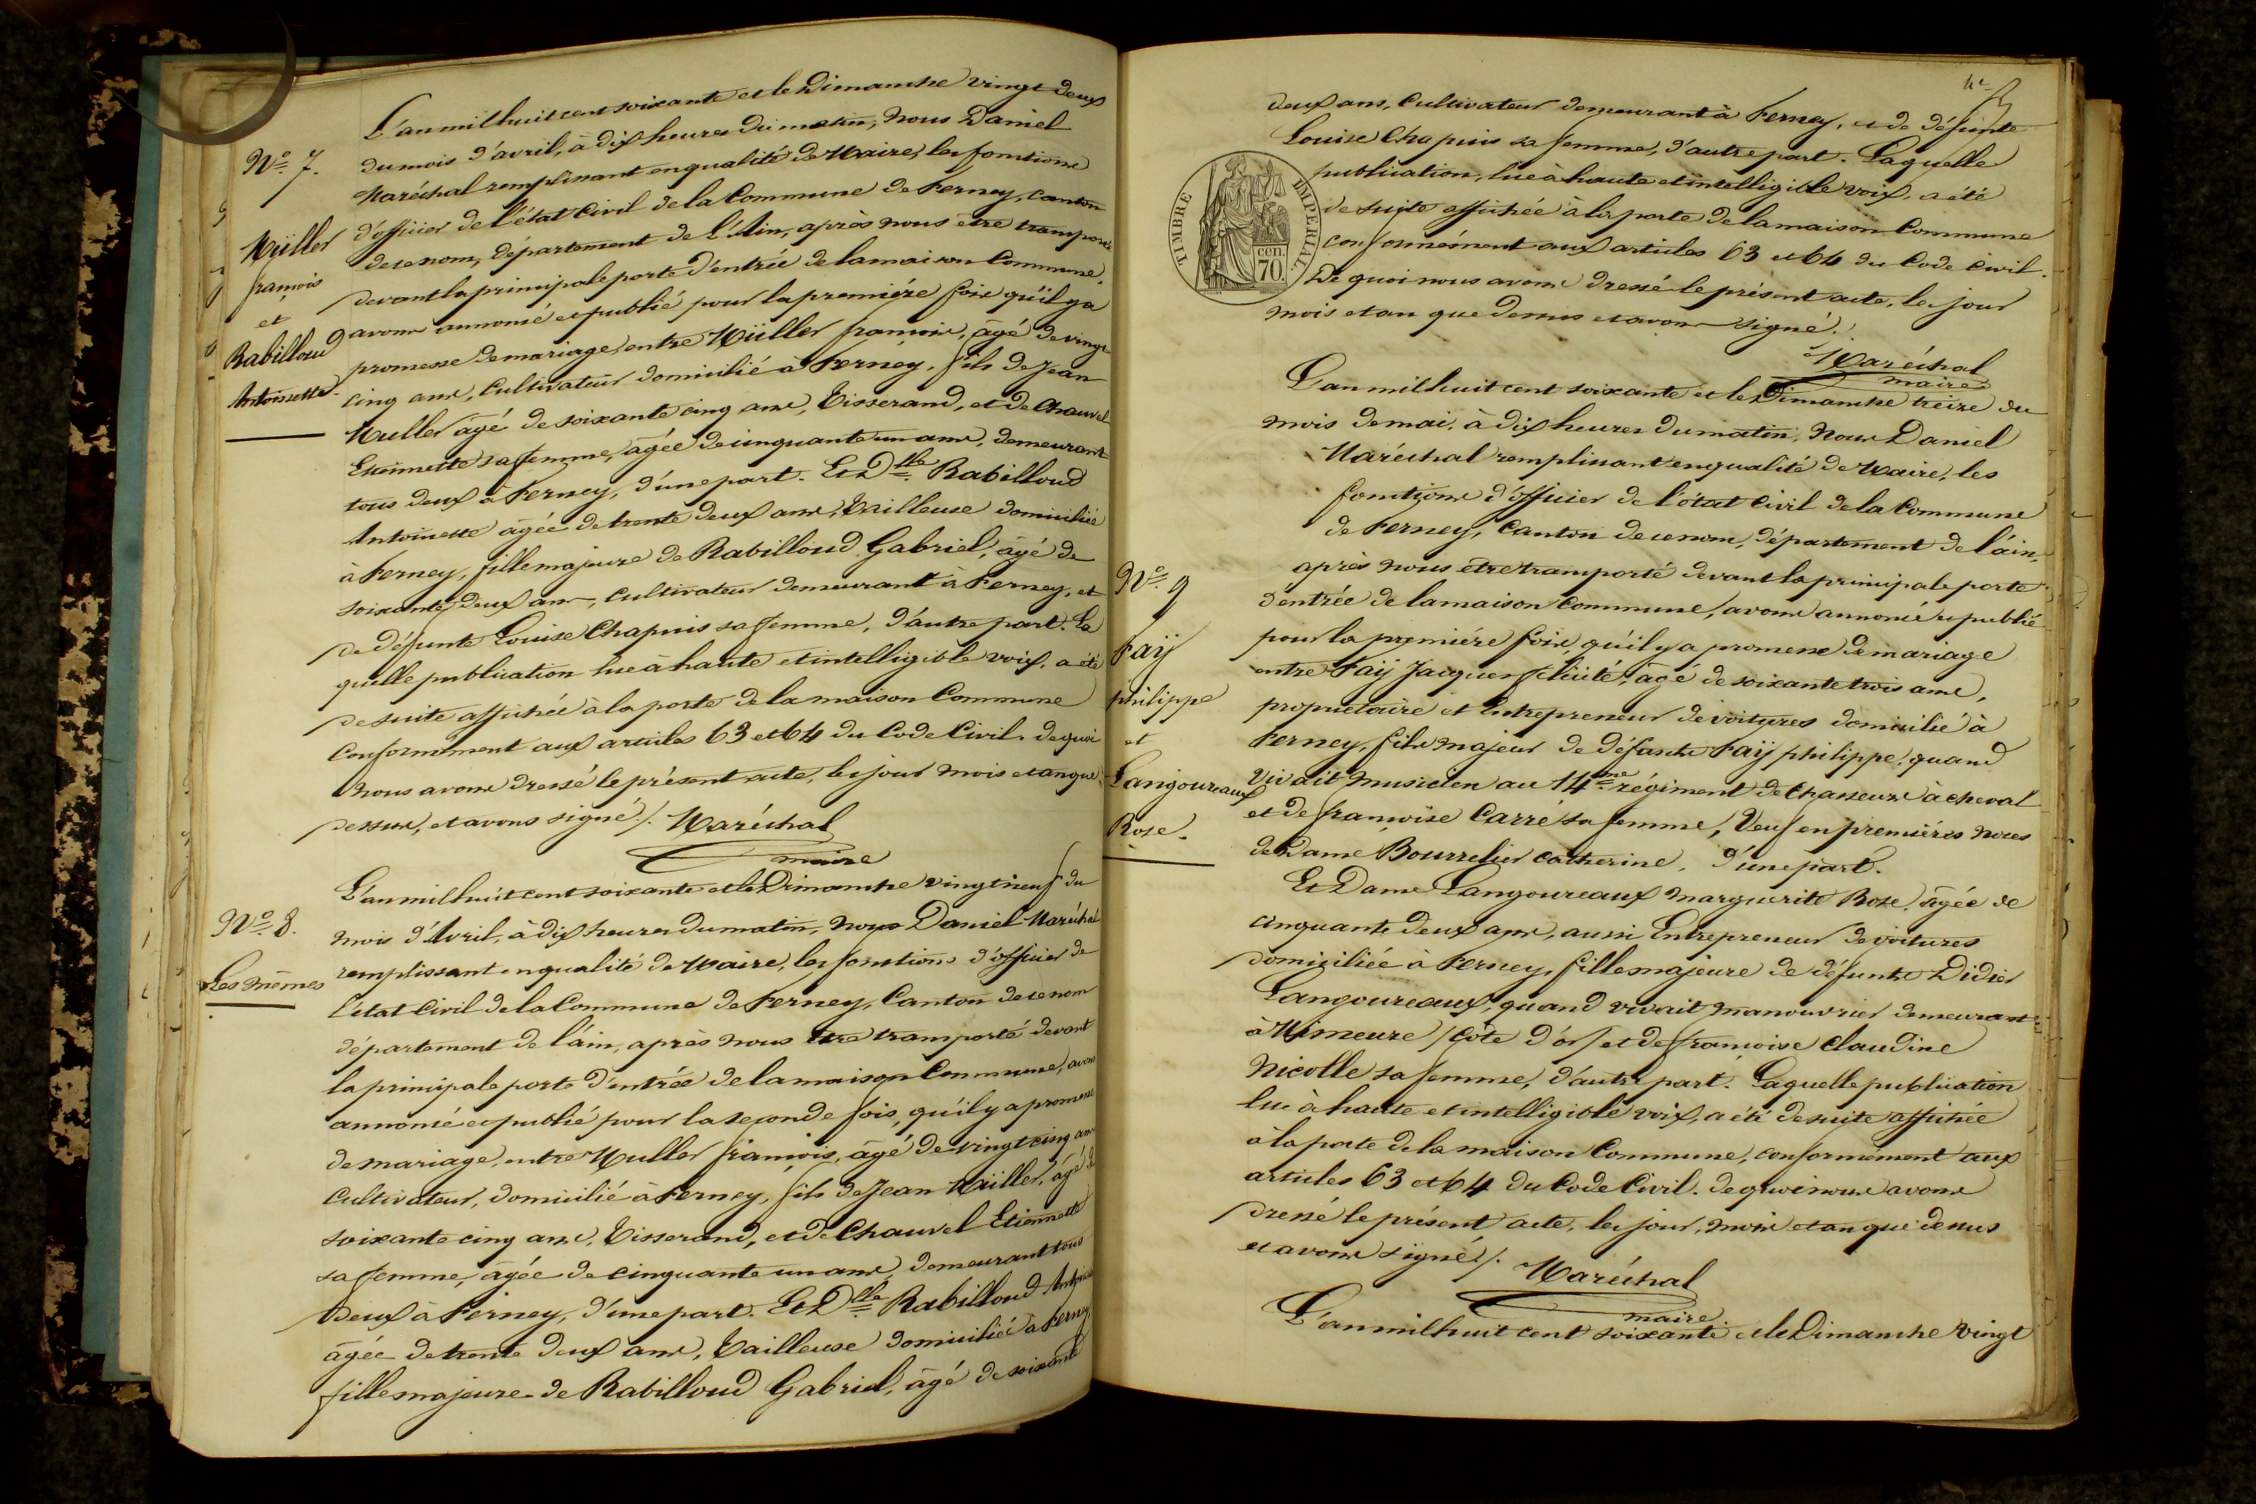 L'an mil huit cent soixante et le Dimanche vingt deux
du mois d'avril, à dix heures du matin, Nous Daniel
Maréchal remplissant en qualité de Maire, les fonctions
d'officier de l'état Civil de la Commune de Ferney, canton
de ce nom, Département de L'Ain, après nous être transporté
devant la principale porte d'entrée de la maison Commune,
avons annoncé et publié pour la première fois qu'il y a
promesse de mariage, entre Müller françois, âgé de vingt
cinq ans, Cultivateur domicilié à Ferney, fils de Jean
Muller âgé de soixante cinq ans, Tisserand, et de Chauvel
Etiennette sa femme, âgée de cinquante un ans, demeurant
tous deux à Ferney, d'une part. Et Dlle Rabilloud
Antoinette âgée de trente deux ans, Tailleuse domiciliée
à Ferney, fille majeure de Rabilloud Gabriel, âgé de
soixante deux ans, cultivateur demeurant à Ferney, et
de défunte Louise Chapuis sa femme, d'autre part. La
quelle publication lue à haute et intelligible voix, a été
de suite affichée à la porte de la maison Commune
Conformément aux articles 63 et 64 du Code Civil. de quoi
Nous avons dressé le présent acte, les jour mois et an que
dessus, et avons signé /. Maréchal
maire
No 7.
Müller
françois
et
Rabilloud
Antoinette
L'an mil huit cent soixante et le Dimanche vingt neuf du
mois d'Avril, à dix heures du matin, Nous Daniel Maréchal
remplissant en qualité de Maire, les fonctions d'officier de
l'état Civil de la Commune de Ferney, Canton de ce nom
département de l'ain, après nous être transporté devant
la principale porte d'entrée de la maison Commune, avons
annoncé et publié pour la seconde fois, qu'il y a promesse
de mariage, entre Muller françois, âgé de vingt cinq ans
Cultivateur, domicilié à Ferney, fils de Jean Müller, âgé de
soixante cinq ans, Tisserand, et de Chauvel Etiennette
sa femme, âgée de cinquante un ans, demeurant tous
deux à Ferney, d'une part. Et Dlle Rabilloud Antoinette
âgée de trente deux ans, Tailleuse domiciliée à Ferney,
fille majeure de Rabilloud Gabriel, âgé de soixante
No 8.
Les mêmes
deux ans, Cultivateur demeurant à Ferney, et de défunte
Louise Chapuis sa femme, d'autre part. Laquelle
publication, lue à haute et intelligible voix, a été
de suite affichée à la porte de la maison Commune
conformément aux articles 63 et 64 du Code Civil.
De quoi nous avons dressé le présent acte, les jour
mois et an que dessus et avons signé./.
Maréchal
maire
TIMBRE IMPERIAL
70. cen.
L'an mil huit cent soixante et le Dimanche treize du
mois de mai, à dix heures du matin, Nous Daniel
Maréchal remplissant en qualité de Maire, les
fonctions d'officier de l'état Civil de la Commune
de Ferney, Canton de ce nom, département de l'ain,
après nous être transporté devant la principale porte
d'entrée de la maison Commune, avons annoncé et publié
pour la première fois, qu'il y a promesse de mariage
entre Faÿ Jacques félicité, âgé de soixante trois ans,
propriétaire et Entrepreneur de voitures domicilié à
Ferney, fils majeur de défunt Faÿ philippe, quand
vivait musicien au 14me régiment de Chasseurs à cheval
et de françoise Carré sa femme, Veuf en premières noces
de Dame Bourrelier Catherine, d'une part.
Et Dame Langoureaux Marguerite Rose, âgée de
cinquante deux ans, aussi Entrepreneur de voitures
domiciliée à Ferney, fille majeure de défunt Didier
Langoureaux, quand vivait Manouvrier demeurant
à Mimeure / côte d'or / et de françoise Claudine
Nicolle sa femme, d'autre part. Laquelle publication
lue à haute et intelligible voix, a été de suite affichée
à la porte de la maison Commune, conformément aux
articles 63 et 64 du Code Civil. de quoi nous avons
dressé le présent acte, les jour, mois et an que dessus
et avons signé /. Maréchal
maire
No 9
Faÿ
philippe
et
Langoureaux
Rose.
L'an mil huit cent soixante et le Dimanche vingt